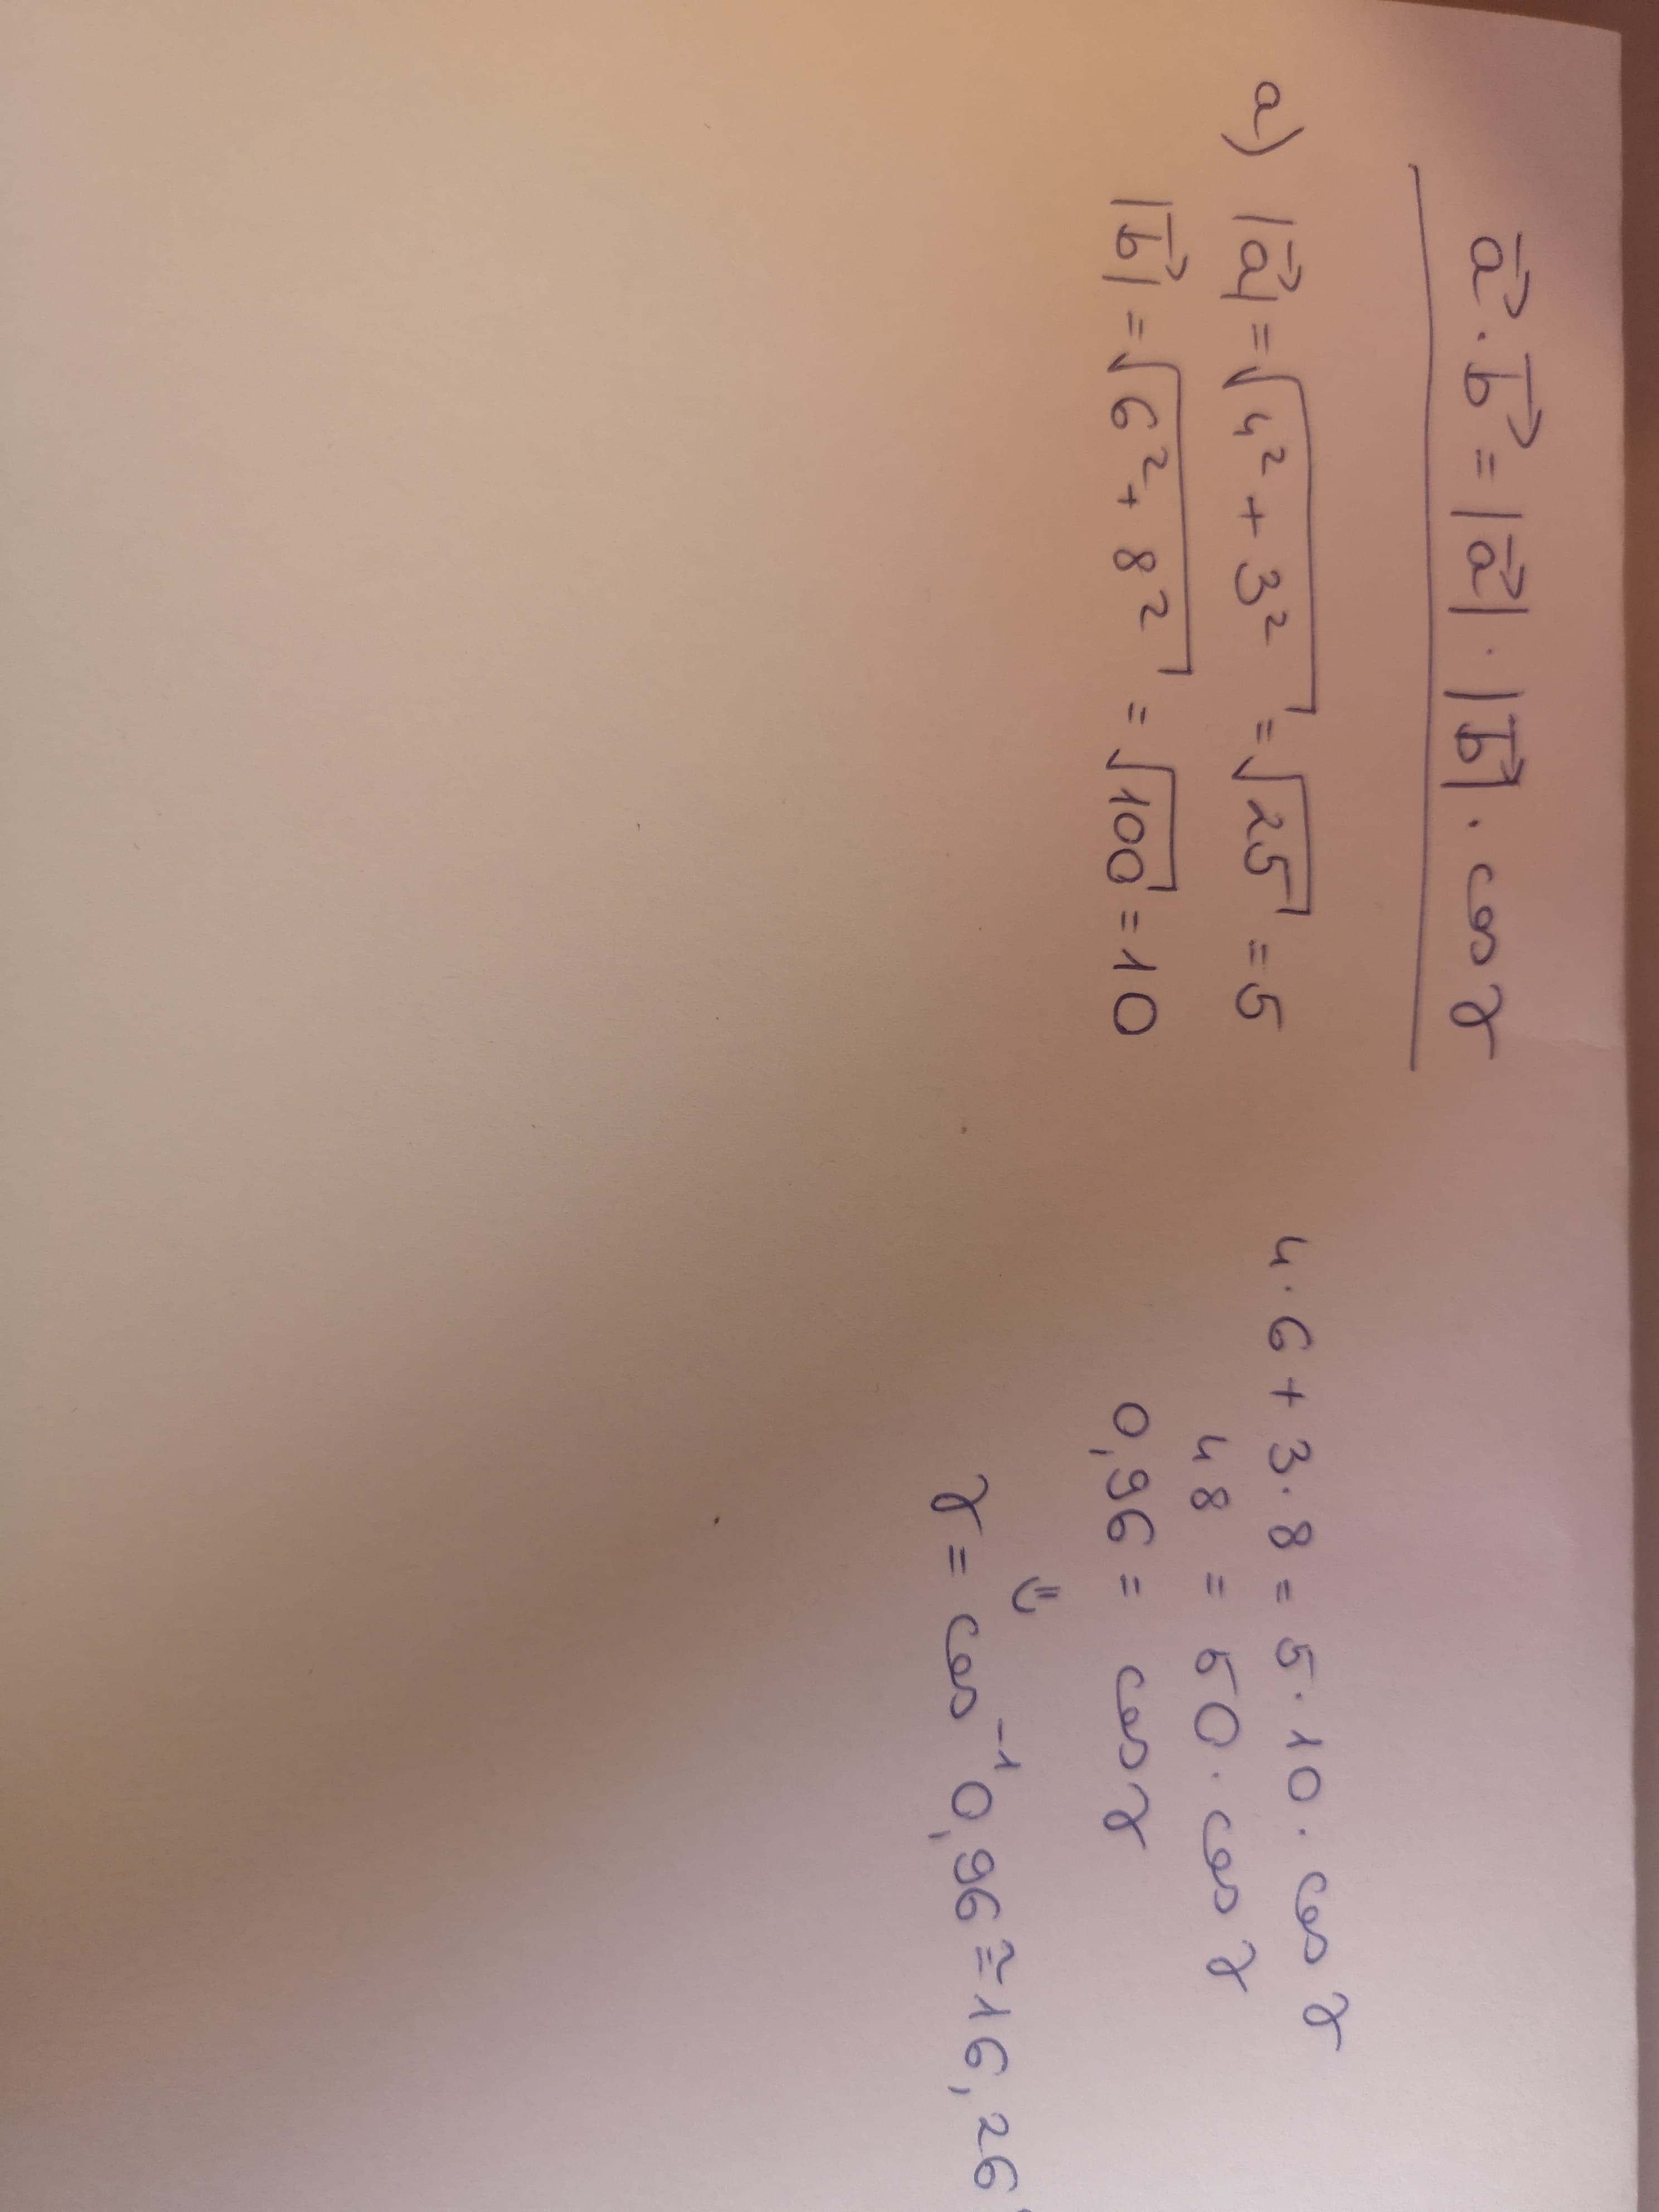 a⃗ · b⃗ = |a⃗| · |b⃗| · cos γ
a) |a⃗| = √(4² + 3²) = √25 = 5
|b⃗| = √(6² + 8²) = √100 = 10
4 · 6 + 3 · 8 = 5 · 10 · cos γ
48 = 50 · cos γ
0,96 = cos γ
⇓
γ = cos⁻¹ 0,96 ≅ 16,26°